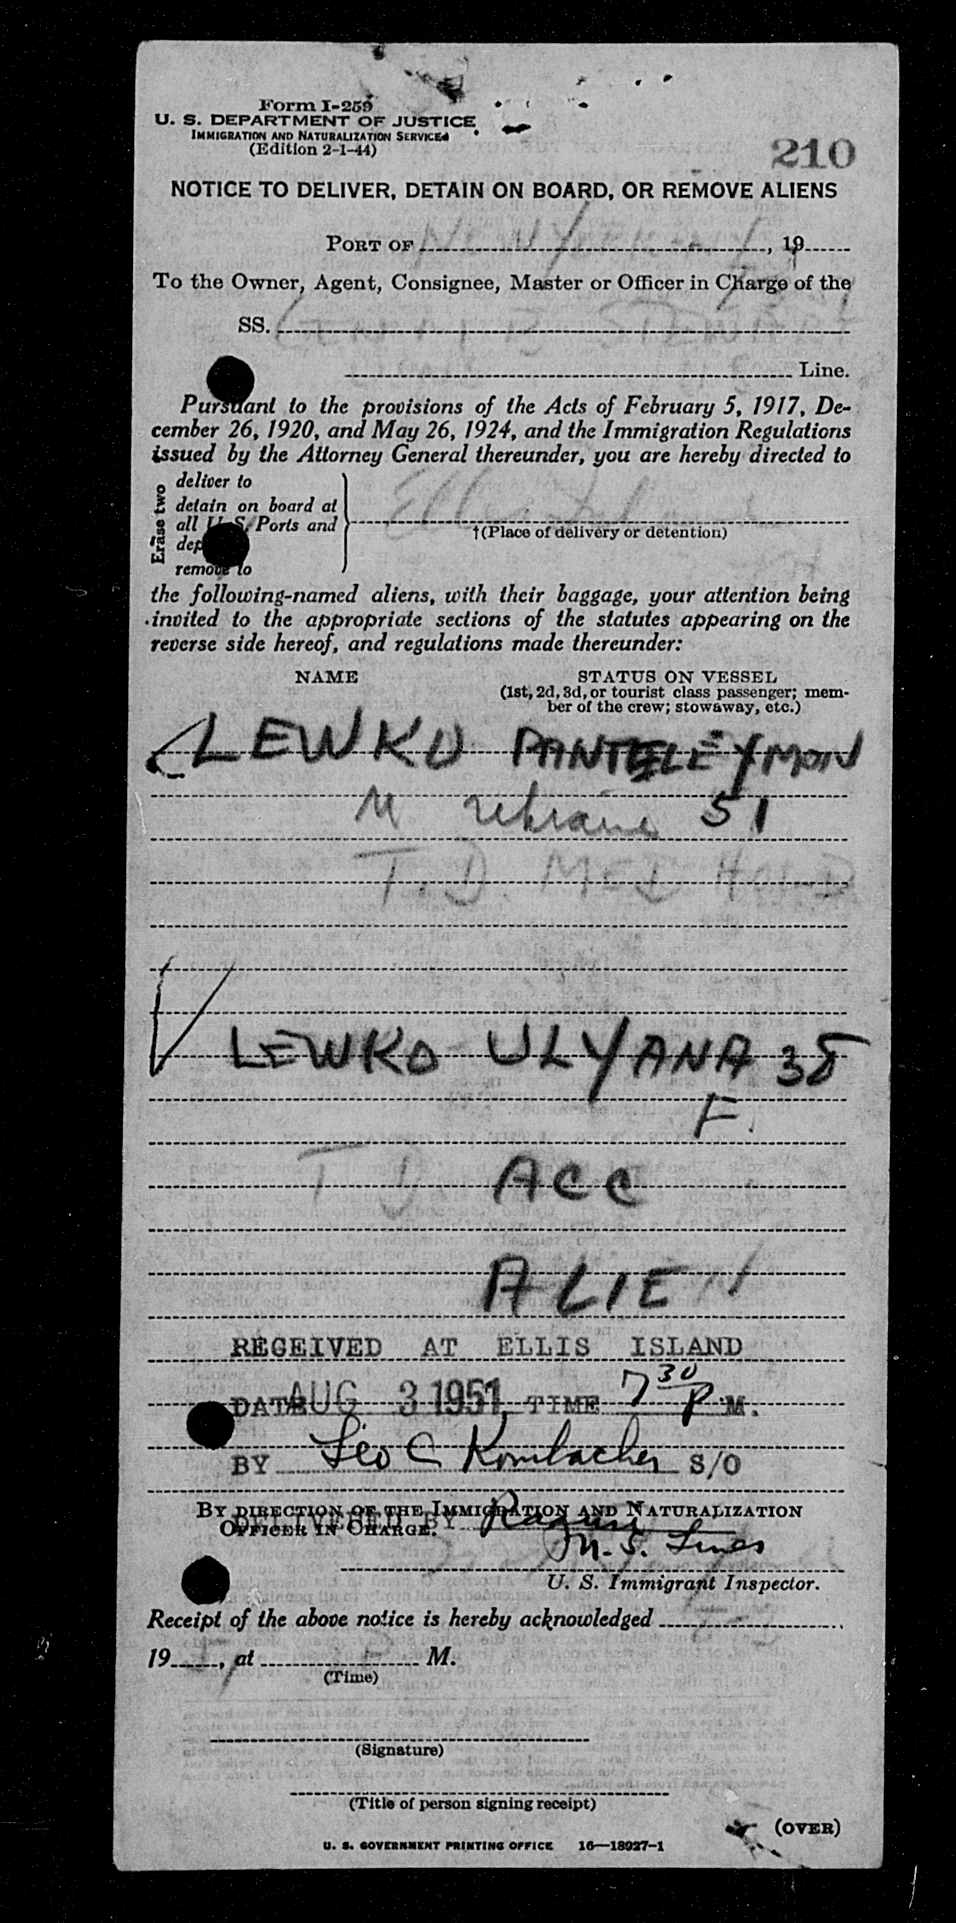 Form I-259
U. S. DEPARTMENT OF JUSTICE
IMMIGRATION AND NATURALIZATION SERVICE
(Edition 2-1-44)
210
NOTICE TO DELIVER, DETAIN ON BOARD, OR REMOVE ALIENS
PORT OF New York, 19
To the Owner, Agent, Consignee, Master or Officer in Charge of the
SS. STEWART
Line.
Pursuant to the provisions of the Acts of February 5, 1917, De-
cember 26, 1920, and May 26, 1924, and the Immigration Regulations
issued by the Attorney General thereunder, you are hereby directed to
Erase two
deliver to
detain on board at
all U. S. Ports and
remove to
Ellis Island
†(Place of delivery or detention)
the following-named aliens, with their baggage, your attention being
invited to the appropriate sections of the statutes appearing on the
reverse side hereof, and regulations made thereunder:
NAME STATUS ON VESSEL
(1st, 2d, 3d, or tourist class passenger; mem-
ber of the crew; stowaway, etc.)
LEWKO PANTELEYMON
M Ukraine 51
T.D. MED HOLD
LEWKO ULYANA 38
F.
T D ACC
ALIEN
RECEIVED AT ELLIS ISLAND
DATE AUG 3 1951 TIME 7 30 P M.
BY Leo C Kornbacher S/O
BY DIRECTION OF THE IMMIGRATION AND NATURALIZATION
OFFICER IN CHARGE.
DELIVERED BY
M. S. Lines
U. S. Immigrant Inspector.
Receipt of the above notice is hereby acknowledged
19, at M.
(Time)
(Signature)
(Title of person signing receipt)
(OVER)
U. S. GOVERNMENT PRINTING OFFICE 16—18927-1